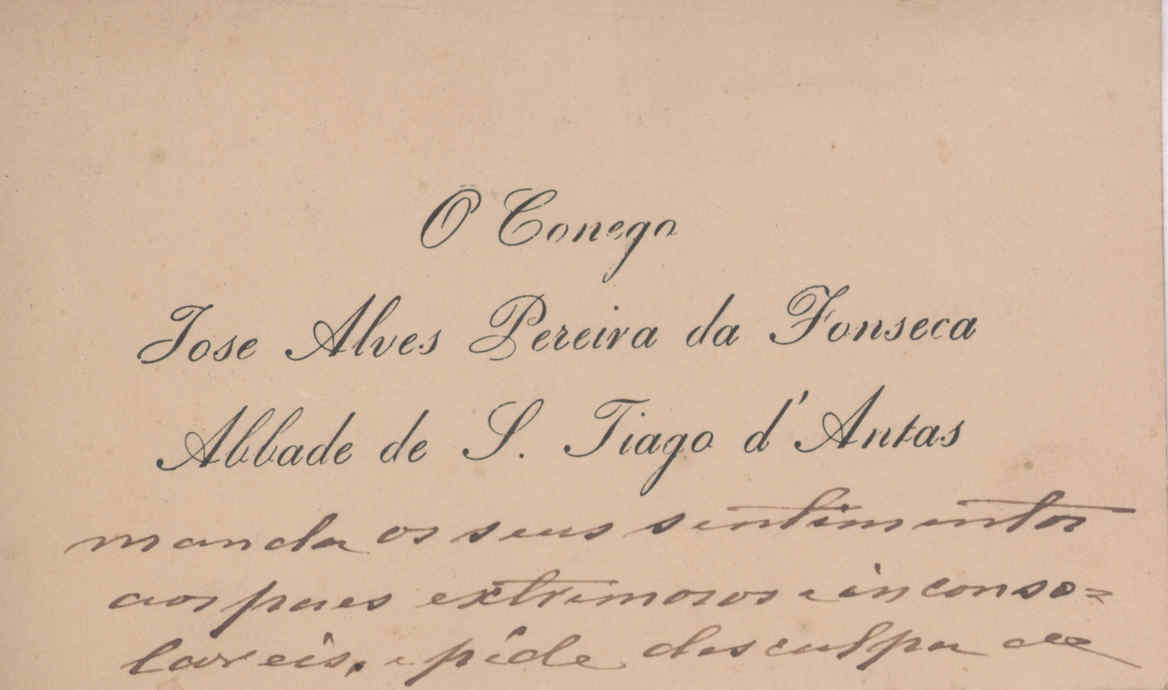 O Conego
Jose Alves Pereira da Fonseca
Abbade de S. Tiago d'Antas
manda os seus sentimentos
aos paes extremosos e inconso=
laveis, e péde desculpa de